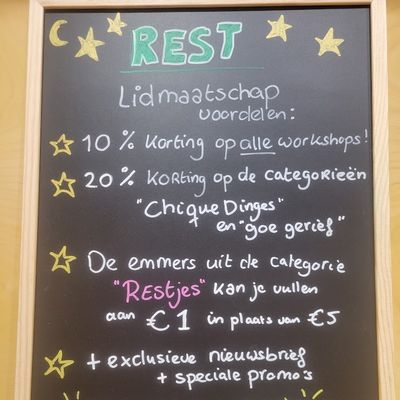 REST
Lidmaatschap
voordelen:
10% korting op alle workshops!
20% korting op de categorieën
"Chique Dinges"
en "goe gerief"
De emmers uit de categorie
"Restjes" kan je vullen
aan €1 in plaats van €5
+ exclusieve nieuwsbrief
+ speciale promo's